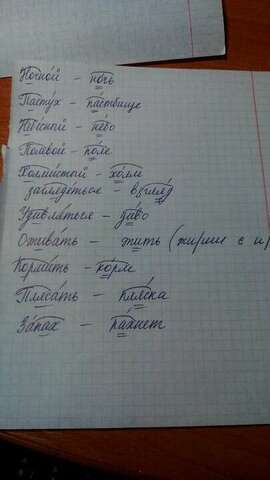 Ночной – ночь
Пастух – пастбище
Небесной – небо
Полевой – поле
Холмистой – холм
заглядеться – взгляд
Удивляться – диво
Оживать – жить (жирши с и)
Кормить – корм
Плясать – пляска
Запах – пахнет